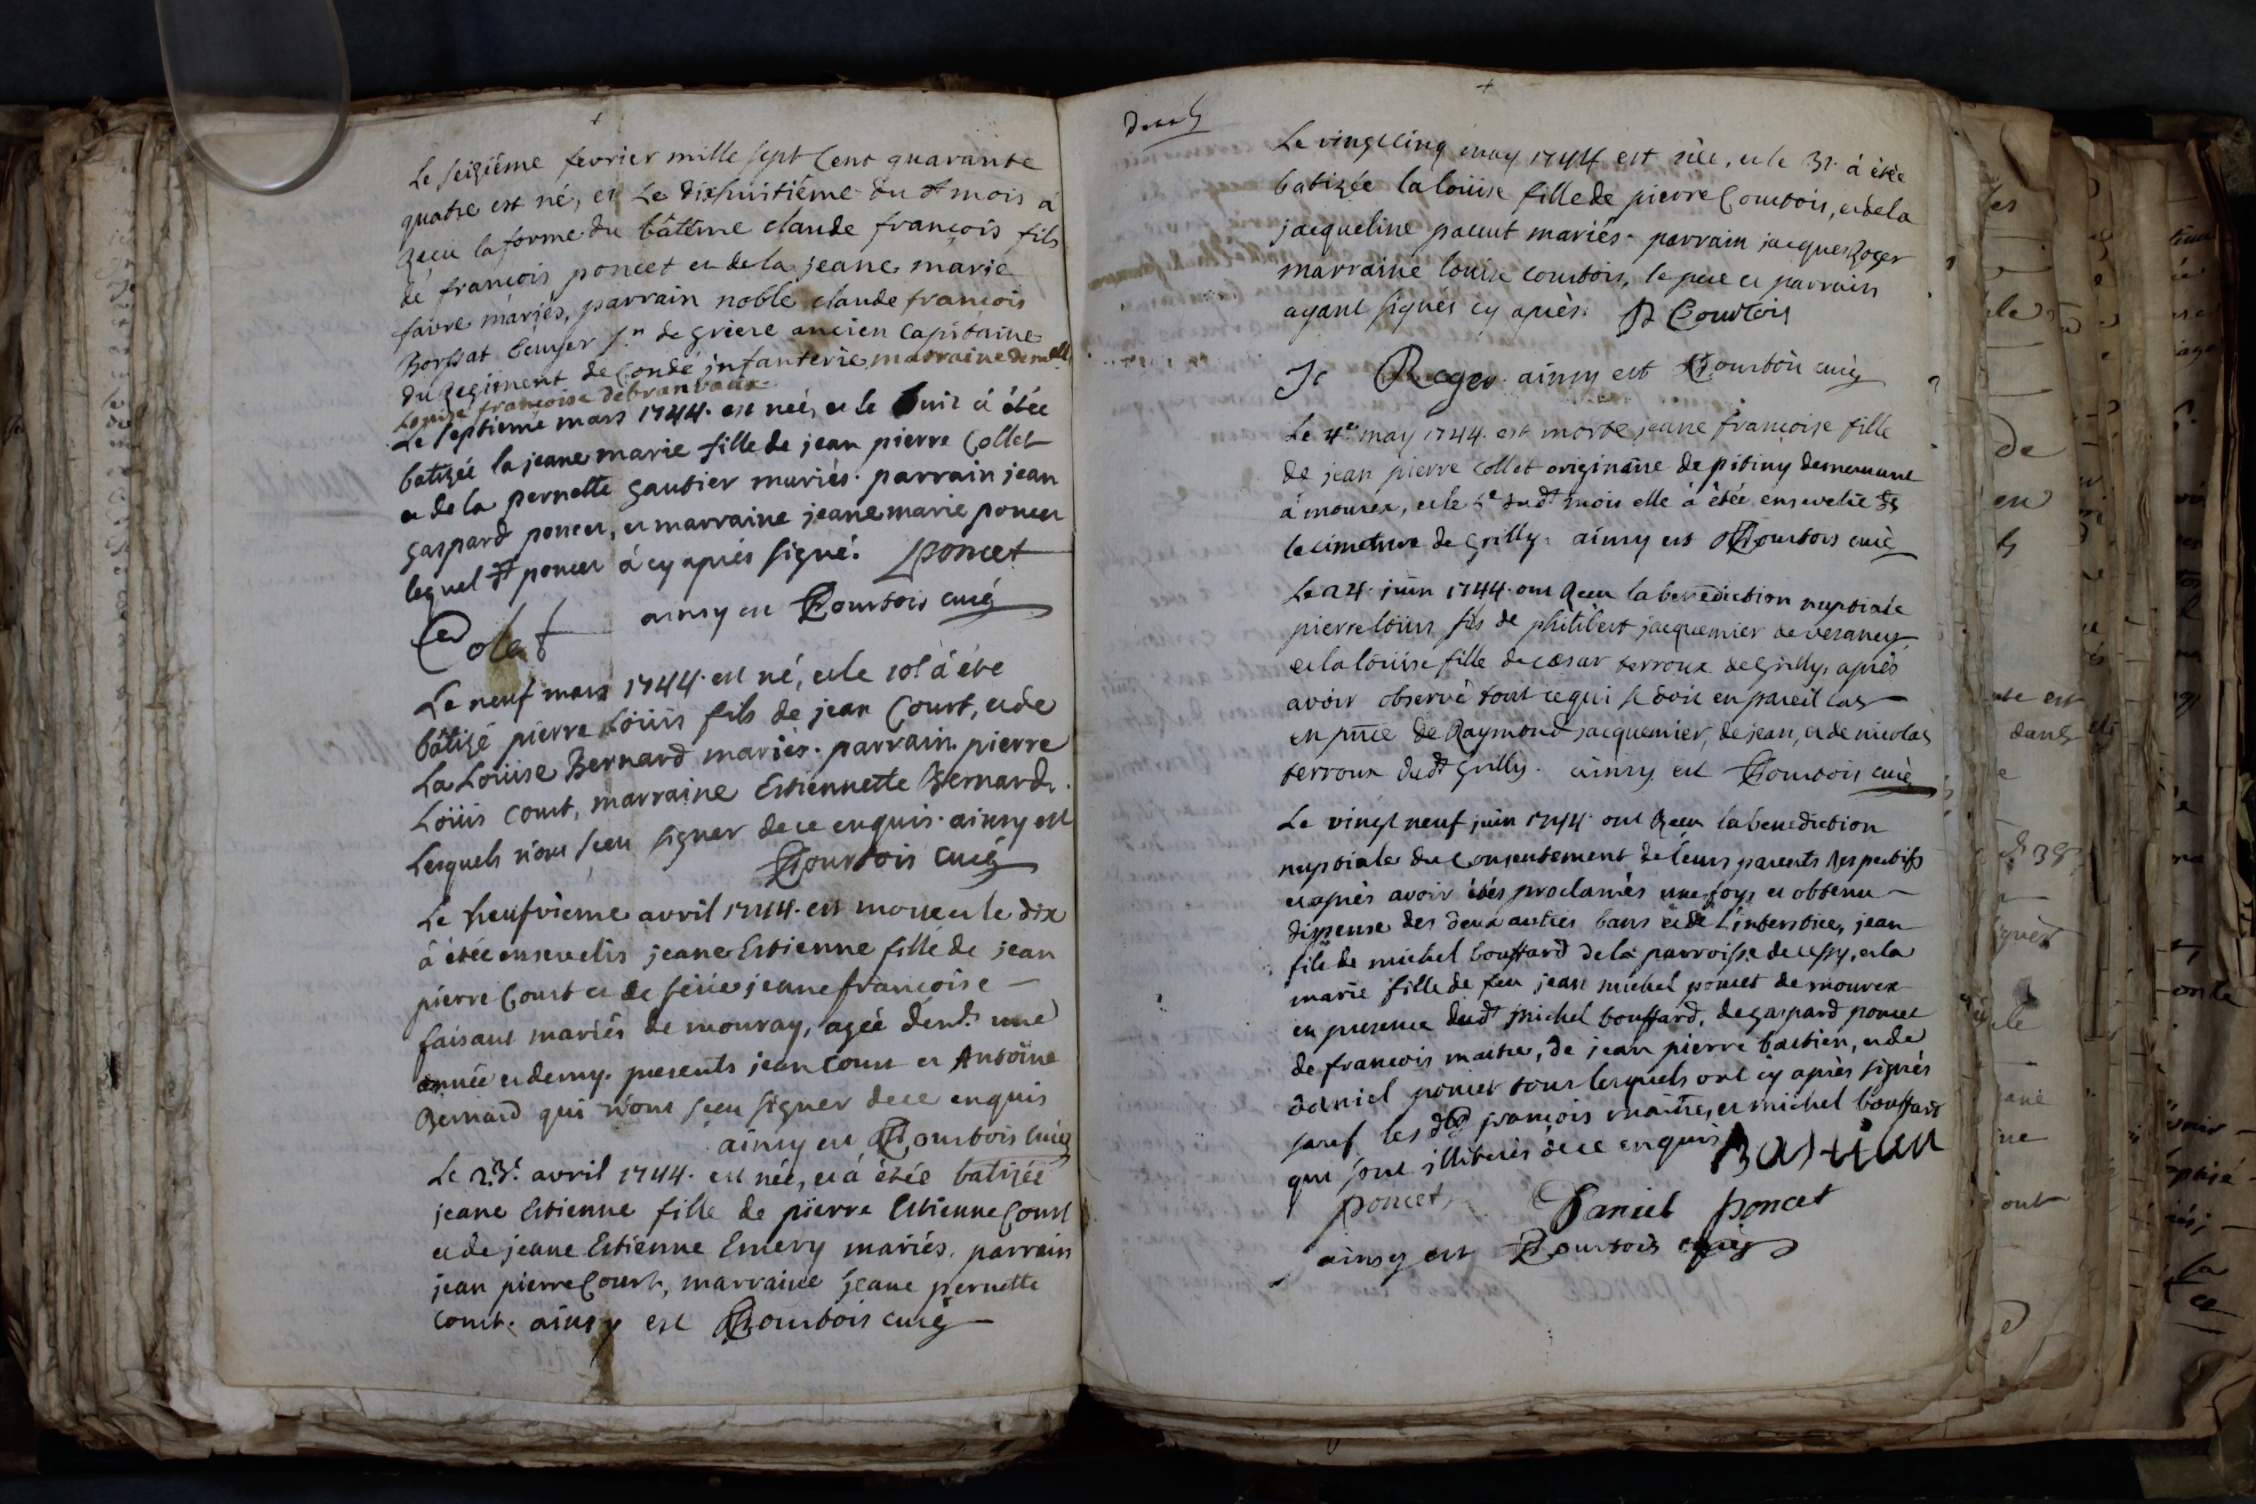 Le seizième fevrier mille sept cent quarante
quatre est né, et Le dixhuitiéme du dt mois á
Receu la forme du bâtême claude françois fils
de françois poncet et de la jeane marie
faivre mariés, parrain noble claude françois
Borssat ecuyer sr de griere ancien Capitaine
du Regiment de Condé jnfanterie, marraine demlle
Louise françoise debranvaux
Le septieme mars 1744. est née, et le huit á étée
batizée la jeane marie fille de jean pierre Collet
et de la pernette gautier mariés. parrain jean
gaspard poncet, et marraine jeane marie poncet
lequel dt poncet á cy aprés signé. poncet
Colet ainsy est Courtois curé
Le neuf mars 1744. est né, et le 10e á été
bâtizé pierre Loüis fils de jean Court, et de
La Loüise Bernard mariés. parrain pierre
Loüis court, marraine Estiennette Bernard.
Lesquels n'ont sceu signer de ce enquis. ainsy est
Courtois curé
Le neufvieme avril 1744. est morte et le dix
á étée ensevelis jeane Estienne fille de jean
pierre Court et de feüe jeane françoise
faisant mariés de mouray, agée d'env. une
année et demy. presents jean Court et Antoine
Bernard qui n'ont sceu signer de ce enquis
ainsy est Courtois curé
Le 23e avril 1744. est née, et á étée batizée
jeane Estienne fille de pierre Estienne Court
et de jeane Estienne Emery mariés. parrain
jean pierre Court, marraine jeane pernette
court. ainsy est Courtois curé
Le vingt cinq may 1744 est née, et le 31. á étée
batizée la loüise fille de pierre Courtois, et de la
jacqueline paccut mariés. parrain jacques Roger
marraine louise courtois, le pere et parrain
ayant signés cy après. P Courtois
Je Roger ainsy est Courtois curé
Le 4e may 1744. est morte jeane françoise fille
de jean pierre Collet originaire de pitiny demeurant
á mourex, et le 5e dudt mois elle á étée ensevelie ds
le cimetiere de grilly. ainsy est Courtois curé
Le 24. juin 1744. ont Receu la benediction nuptiale
pierre loüis fils de philibert jacquemier de vezancy,
et la loüise fille de cæsar terroux de Grilly, après
avoir observé tout ce qui se doit en pareil cas
en pnce de Raymond jacquemier, de jean, et de nicolas
terroux dudt Grilly. ainsy est Courtois curé
Le vingt neuf juin 1744. ont Receu la benediction
nuptiale du Consentement de leurs parents Respectifs
et après avoir étés proclamés une foys et obtenu
dispense des deux autres bans et de L'interstice, jean
fils de michel bouffard de la parroisse de cessy, et la
marie fille de feu jean michel poncet de mourex
en presence dudt michel bouffard, de gaspard poncet
de françois maitre, de jean pierre bastien, et de
daniel poncet tous lesquels ont cy après signés
sauf les dts françois maitre, et michel bouffard
qui sont jlliterés de ce enquis Bastian
poncet Daniel poncet
ainsy est Courtois curé